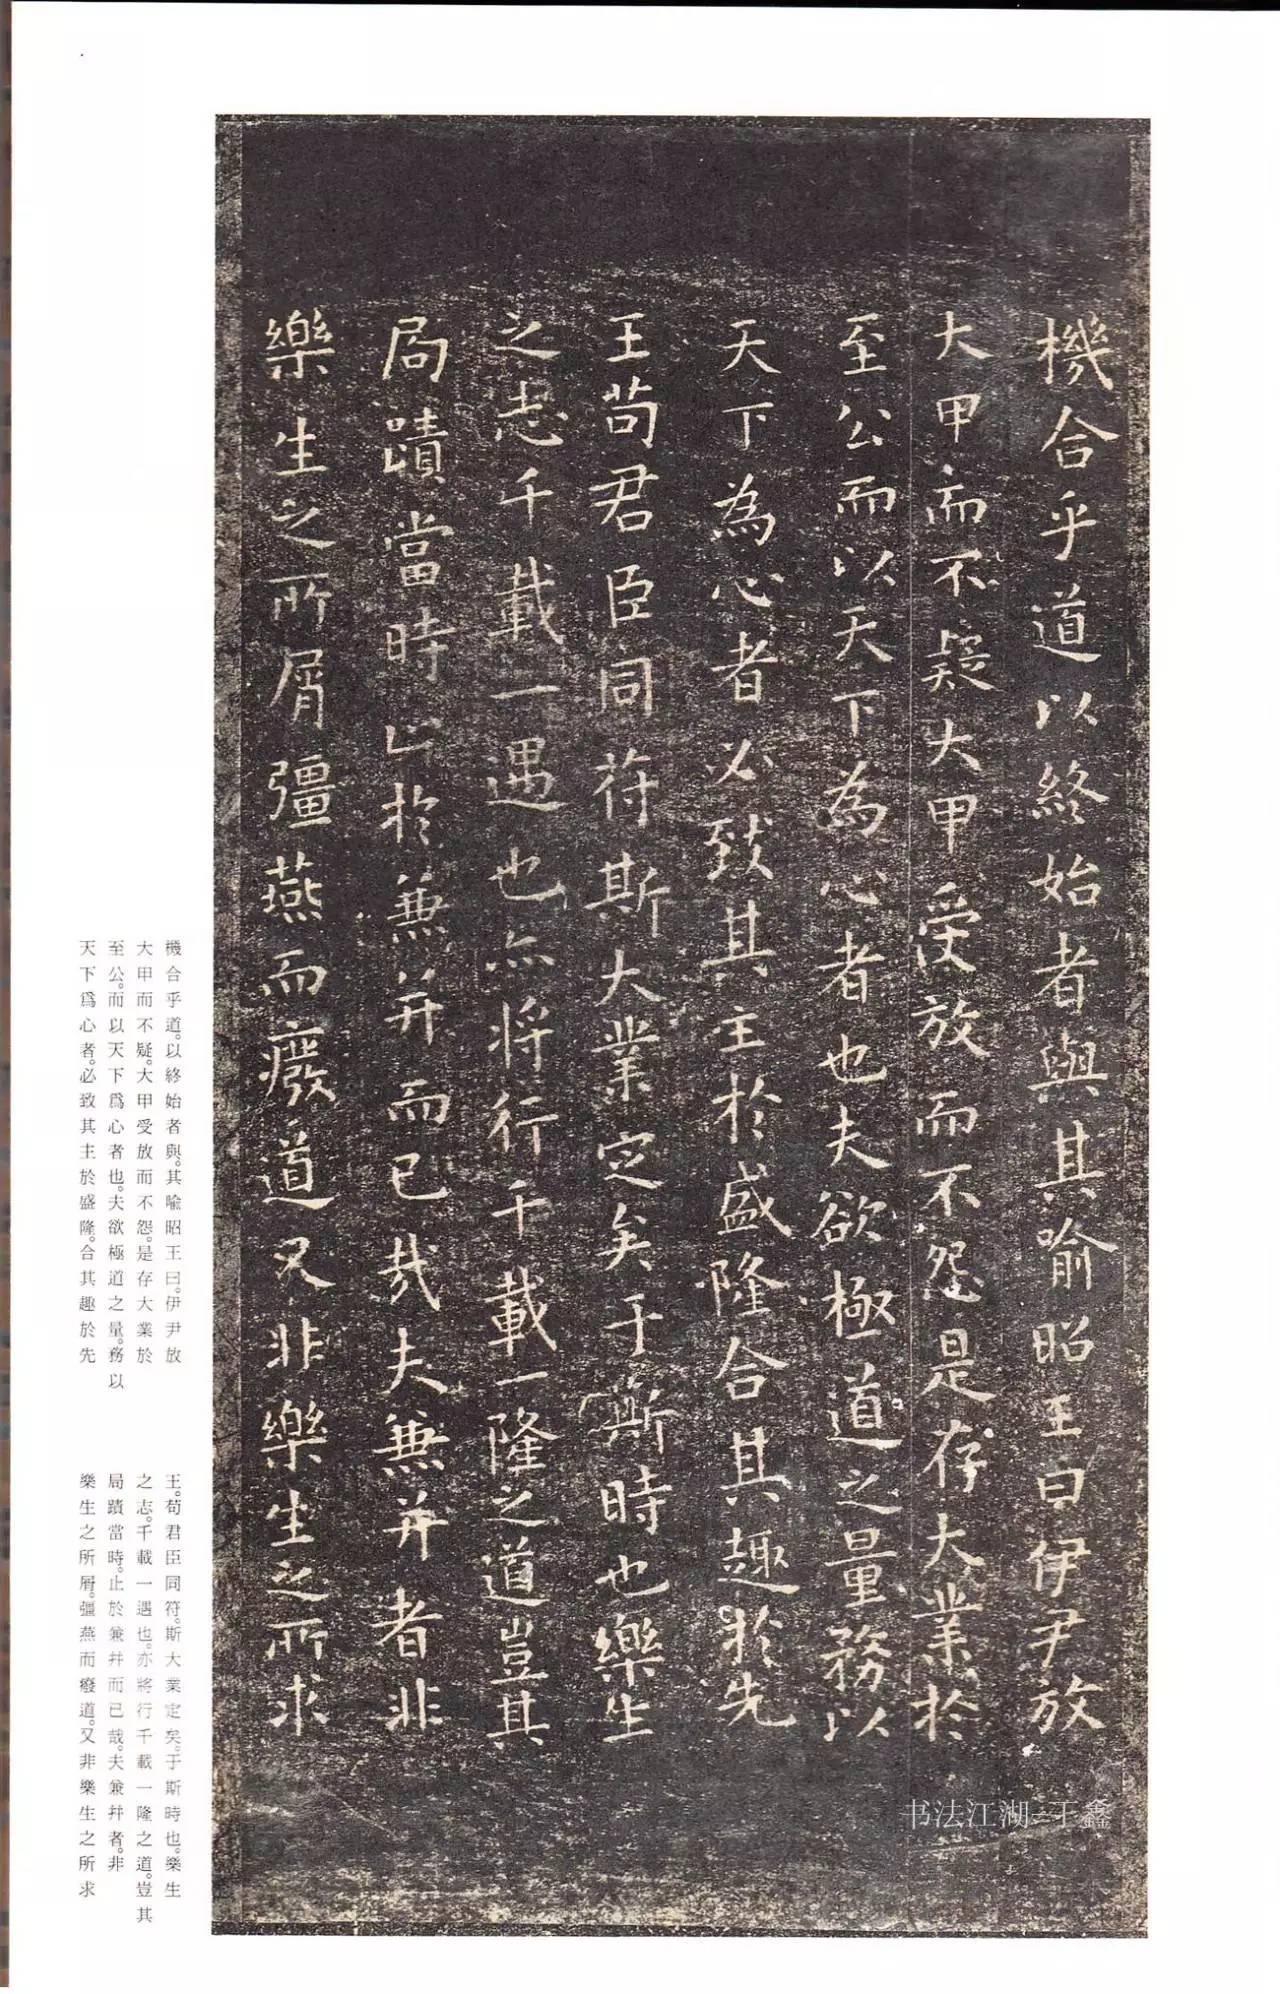 機合乎道以終始者與其喻昭王曰伊尹放
大甲而不疑大甲受放而不怨是存大業於
至公而以天下為心者也夫欲極道之量務以
天下為心者必致其主於盛隆合其趣於先
王苟君臣同符斯大業定矣于斯時也樂生
之志千載一遇也亦將行千載一隆之道豈其
局蹟當時止於兼并而已哉夫兼并者非
樂生之所屑彊燕而癈道又非樂生之所求
书法江湖-于鑫
機合乎道。以終始者與。其喻昭王曰。伊尹放
大甲而不疑。大甲受放而不怨。是存大業於
至公。而以天下爲心者也。夫欲極道之量。務以
天下爲心者。必致其主於盛隆。合其趣於先
王。苟君臣同符。斯大業定矣。于斯時也。樂生
之志。千載一遇也。亦將行千載一隆之道。豈其
局蹟當時。止於兼幷而已哉。夫兼幷者。非
樂生之所屑。彊燕而癈道。又非樂生之所求